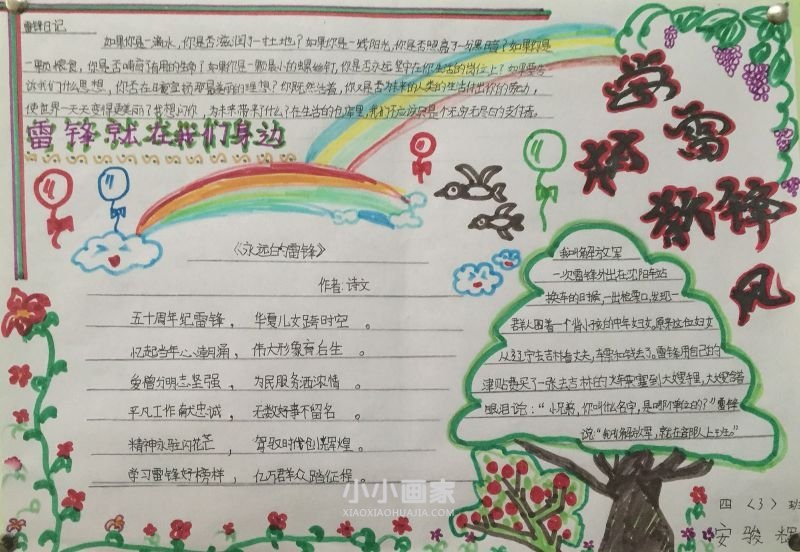 雷锋日记
如果你是一滴水，你是否滋润了一寸土地？如果你是一线阳光，你是否照亮了一分黑暗？如果你是
一颗粮食，你是否哺育了有用的生命？如果你是一颗最小的螺丝钉，你是否永远坚守在你生活的岗位上？如果要告
诉我们什么思想，你是否在日夜宣扬那最美丽的理想？你既然活着，你又是否为未来的人类的生活付出你的劳动，
使世界一天天变得更美丽？我想问你，为未来带来了什么？在生活的仓库里，我们不应该只是个无穷无尽的支付者。
雷锋就在我们身边
学雷
新锋
新风
《永远的雷锋》
作者：诗文
五十周年纪雷锋，华夏儿女跨时空。
忆起当年心潮涌，伟大形象育后生。
爱憎分明志坚强，为民服务洒浓情。
平凡工作献忠诚，无数好事不留名。
精神永驻闪光芒，驾驭时代创辉煌。
学习雷锋好榜样，亿万群众踏征程。
我叫解放军
一次雷锋外出在沈阳车站
换车的时候，一出检票口，发现一
群人围着一个背小孩的中年妇女。原来这位妇女
从辽宁去吉林看丈夫，车票和钱丢了。雷锋用自己的
津贴费买了一张去吉林的火车票塞到大嫂手里，大嫂含着
眼泪说：“小兄弟，你叫什么名字，是哪个单位的？”雷锋
说：“我叫解放军，就在
四（3）班
安骏辉
小小画家
XIAOXIAOHUAJIA.COM